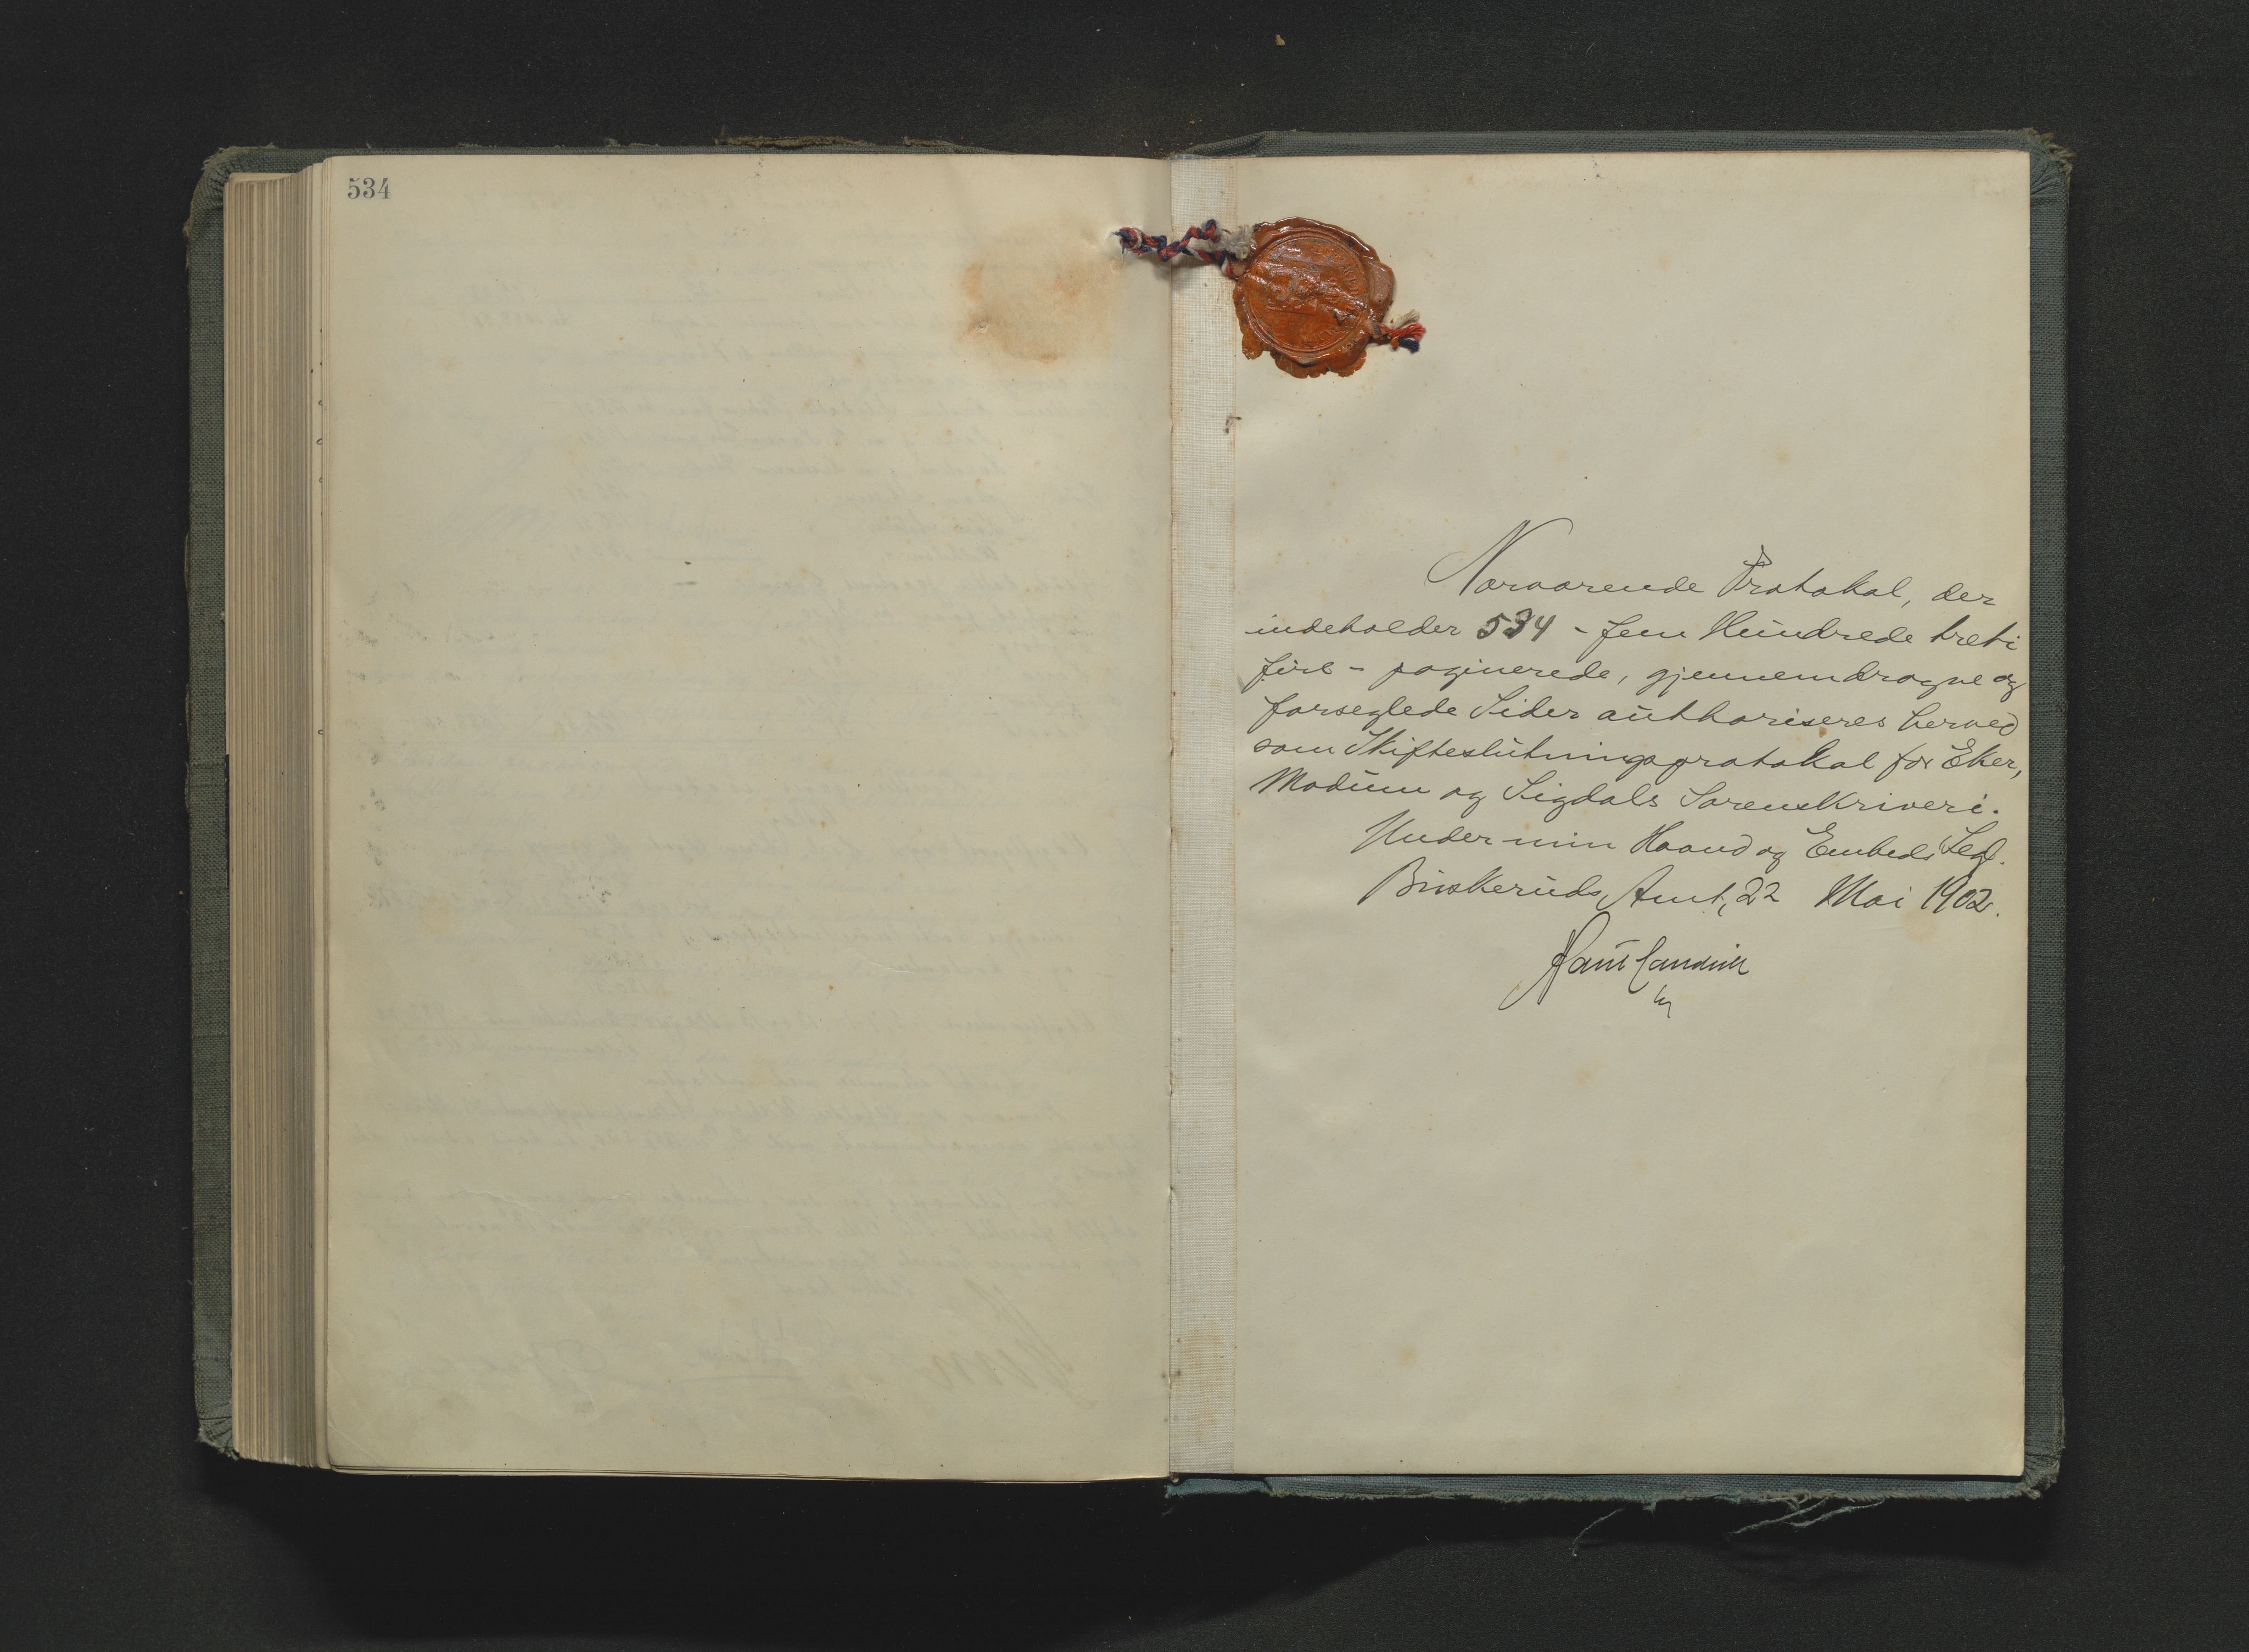 534
Nærværende Protokol, der
indeholder 534 - fem Hundrede treti
fire - paginerede, gjennemdragne og
forseglede Sider authoriseres herved
som Skifteslutningsprotokol for Eker,
Modum og Sigdals Sorenskriveri.
Under min Haand og Embeds Segl.
Buskeruds Amt, 22 Mai 1902.